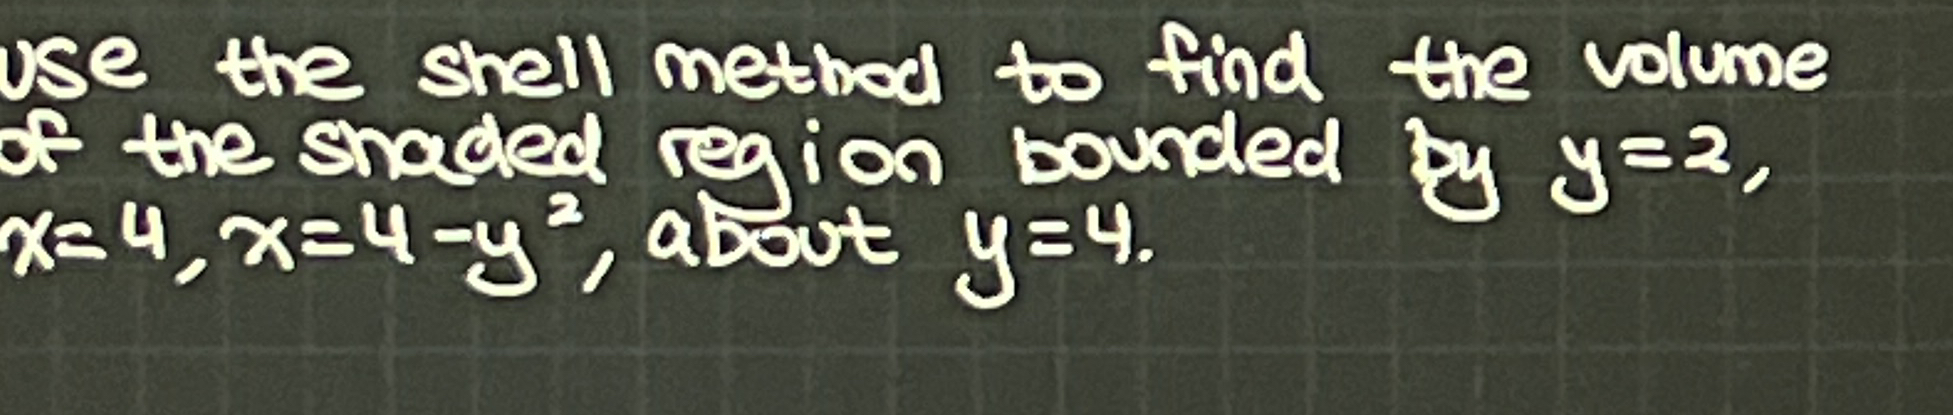 use the shell method to find the volume
of the shaded region bounded by y=2,
x=4, x=4-y², about y=4.